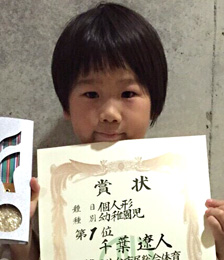 賞状
種目 個人形
種別 幼稚園児
第1位
千葉遼人